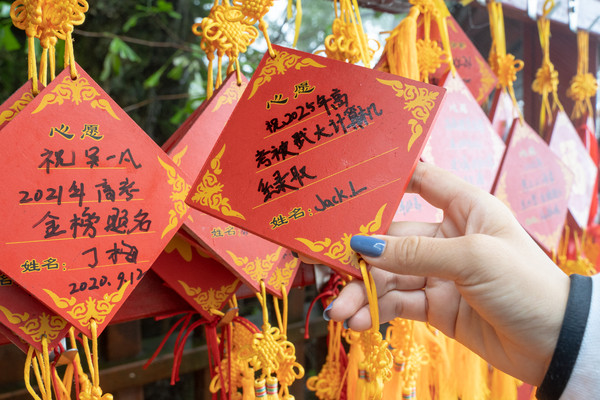 心愿
祝吴一凡
2021年高考
金榜题名
姓名:丁梅
2020.9.12
心愿
祝2025年高
考被武大计算机
系录取
姓名:Jack L